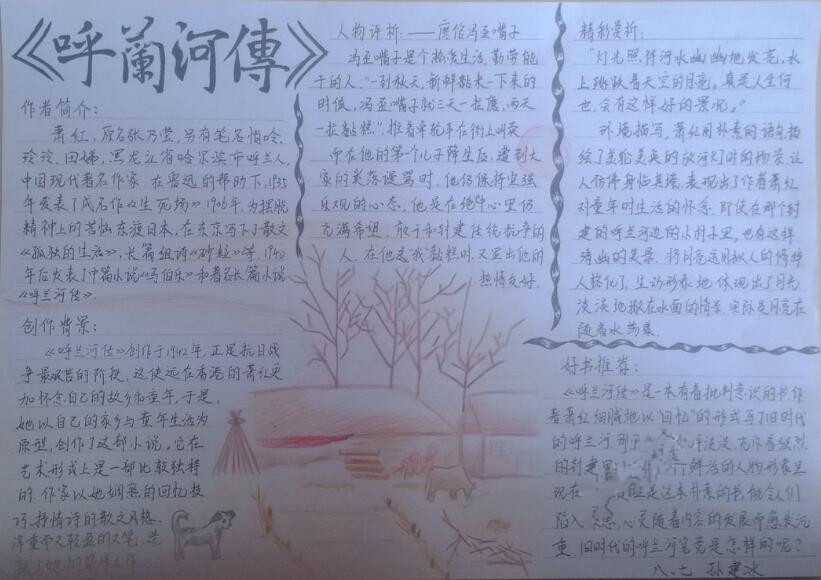 《呼蘭河傳》
作者简介：
萧红，原名张乃莹，另有笔名悄吟、
玲玲、田娣，黑龙江省哈尔滨市呼兰人，
中国现代著名作家 在鲁迅的帮助下，1935
年发表了成名作《生死场》。1936年，为摆脱
精神上的苦恼东渡日本，在东京写下了散文
《孤独的生活》，长篇组诗《砂粒》等。1940
年后发表了中篇小说《马伯乐》和著名长篇小说
《呼兰河传》。
创作背景：
《呼兰河传》创作于1942年，正是抗日战
争最艰苦的阶段，这使远在香港的萧红更
加怀念自己的故乡和童年，于是，
她以自己的家乡与童年生活为
原型，创作了这部小说，它在
艺术形式上是一部比较独特
的 作家以她娴熟的回忆技
巧、抒情诗的散文风格、
浑重而又轻盈的文笔，造
就了她的
人物评析：——磨倌冯歪嘴子
冯歪嘴子是个热爱生活，勤劳能
干的人。“一到秋天，新鲜黏米一下来的
时候，冯歪嘴子就三天一拉磨，两天
一拉黏糕”。推着单轮车在街上叫卖
而在他的第一个儿子降生后，遭到大
家的冷落谩骂时，他仍保持坚强
乐观的心态，他是在绝望中心里仍
充满希望，敢于和封建传统抗争的
人。在他送“我”黏糕时，又显出他的
热情友好。
精彩赏析：
“灯光照得河水幽幽地发亮，水
上跳跃着天空的月亮。真是人生何
世，会有这样好的景况。”
环境描写，萧红用朴素的语句描
绘了美轮美奂的放河灯时的场景，让
人仿佛身临其境。表现出了作者萧红
对童年时生活的怀念。即使在那个封
建的呼兰河边的小村子里，也有这样
诗幽的美景。将月亮运用拟人的修辞
人格化了，生动形象地体现出了月光
淡淡地撒在水面的情景 实际是月亮在
随着水荡漾
好书推荐：
《呼兰河传》是一本有着批判意识的书，作
者萧红细腻地以“回忆”的形式写了旧时代
的呼兰河 那里 充斥着强烈
的封建 个鲜活的人物形象呈
现在 是这本朴素的书，能令人们
陷入 思，心灵随着内容的发展而愈发沉
重，旧时代的呼兰河究竟是怎样的呢？
八、七 孙 冰